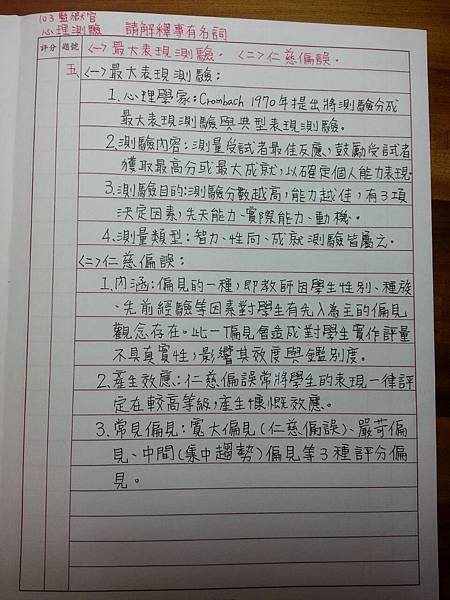 103監獄官
心理測驗 請解釋專有名詞
評分 題號 <一>最大表現測驗. <二>仁慈偏誤.
五 <一>最大表現測驗:
1.心理學家:Crombach 1970年提出將測驗分成
最大表現測驗與典型表現測驗。
2.測驗內容:測量受試者最佳反應,鼓勵受試者
獲取最高分或最大成就,以確定個人能力表現.
3.測驗目的:測驗分數越高,能力越佳,有3項
決定因素,先天能力、實際能力、動機。
4.測量類型:智力、性向、成就測驗皆屬之.
<二>仁慈偏誤:
1.內涵:偏見的一種,即教師因學生性別、種族
、先前經驗等因素對學生有先入為主的偏見
觀念存在。此一偏見會造成對學生實作評量
不具真實性,影響其效度與鑑別度。
2.產生效應:仁慈偏誤常將學生的表現一律評
定在較高等級,產生慷慨效應。
3.常見偏見:寬大偏見(仁慈偏誤)、嚴苛偏
見、中間(集中趨勢)偏見等3種評分偏
見。